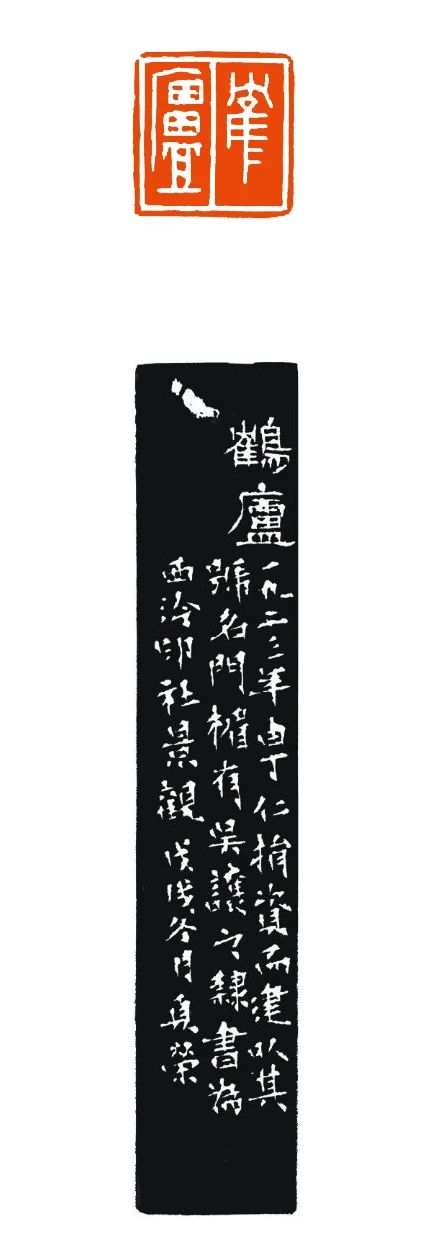 隺廬
鶴廬
一九二三年由丁仁捐資而建以其
號名門楣有吳讓之隸書為
西泠印社景觀戊戌冬月真榮